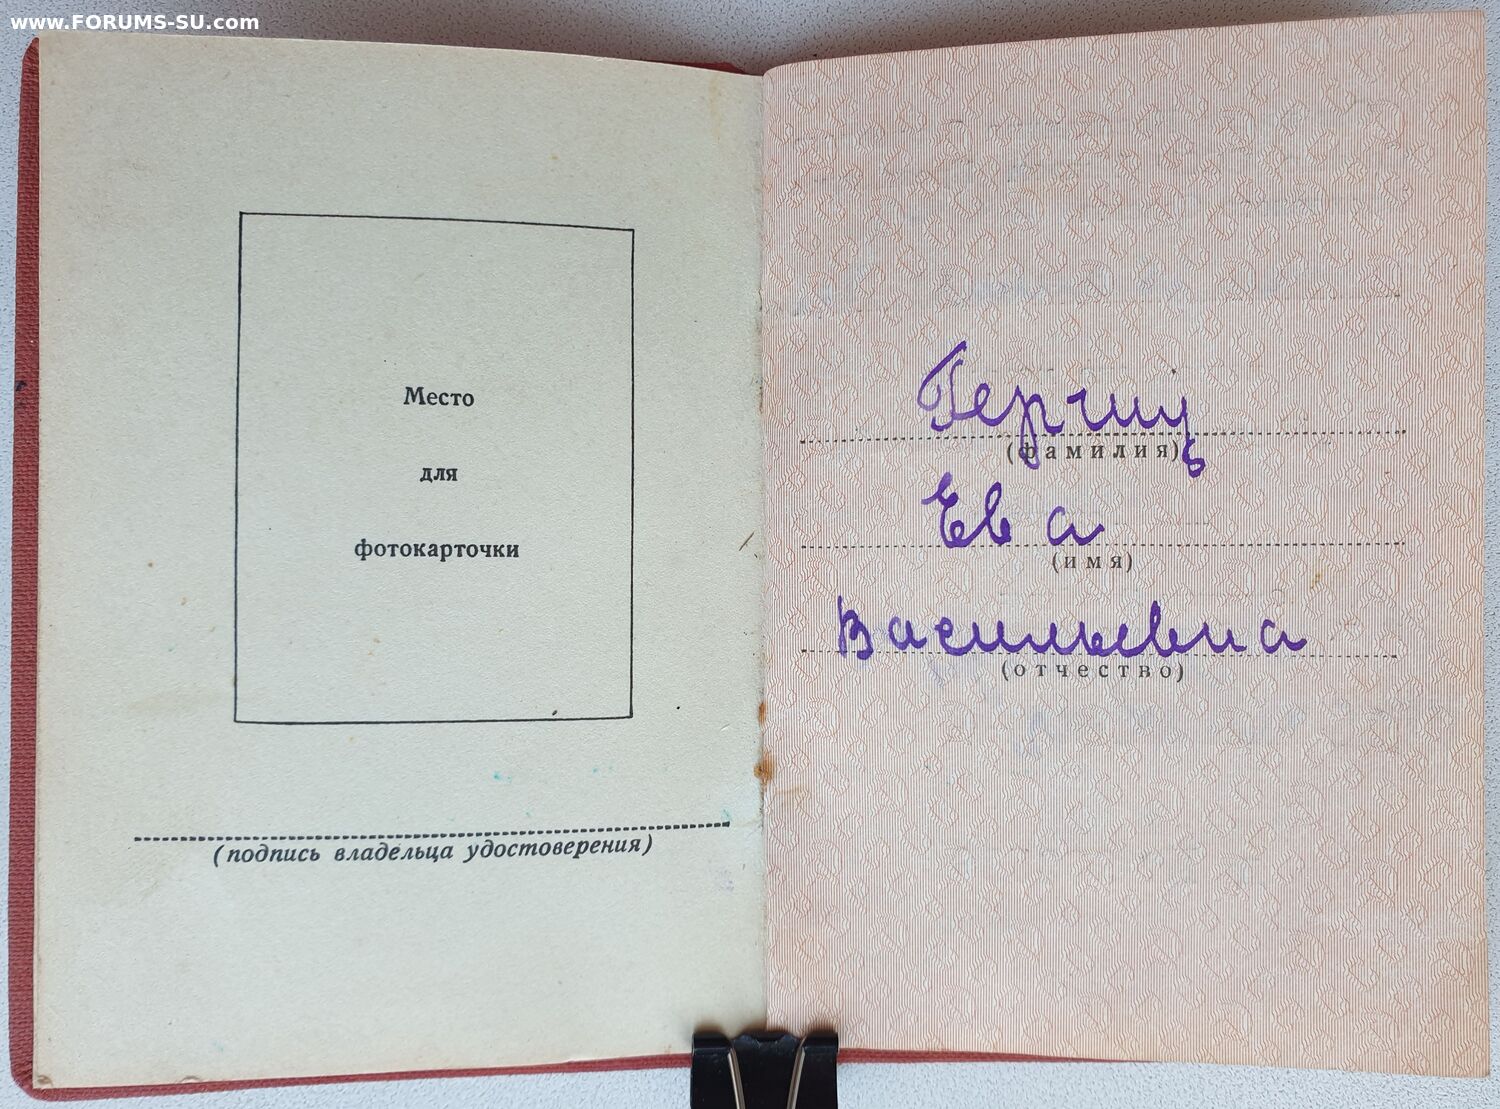 www.FORUMS-SU.com
Место
для
фотокарточки
(подпись владельца удостоверения)
Герчиц
(фамилия)
Ева
(имя)
Васильевна
(отчество)